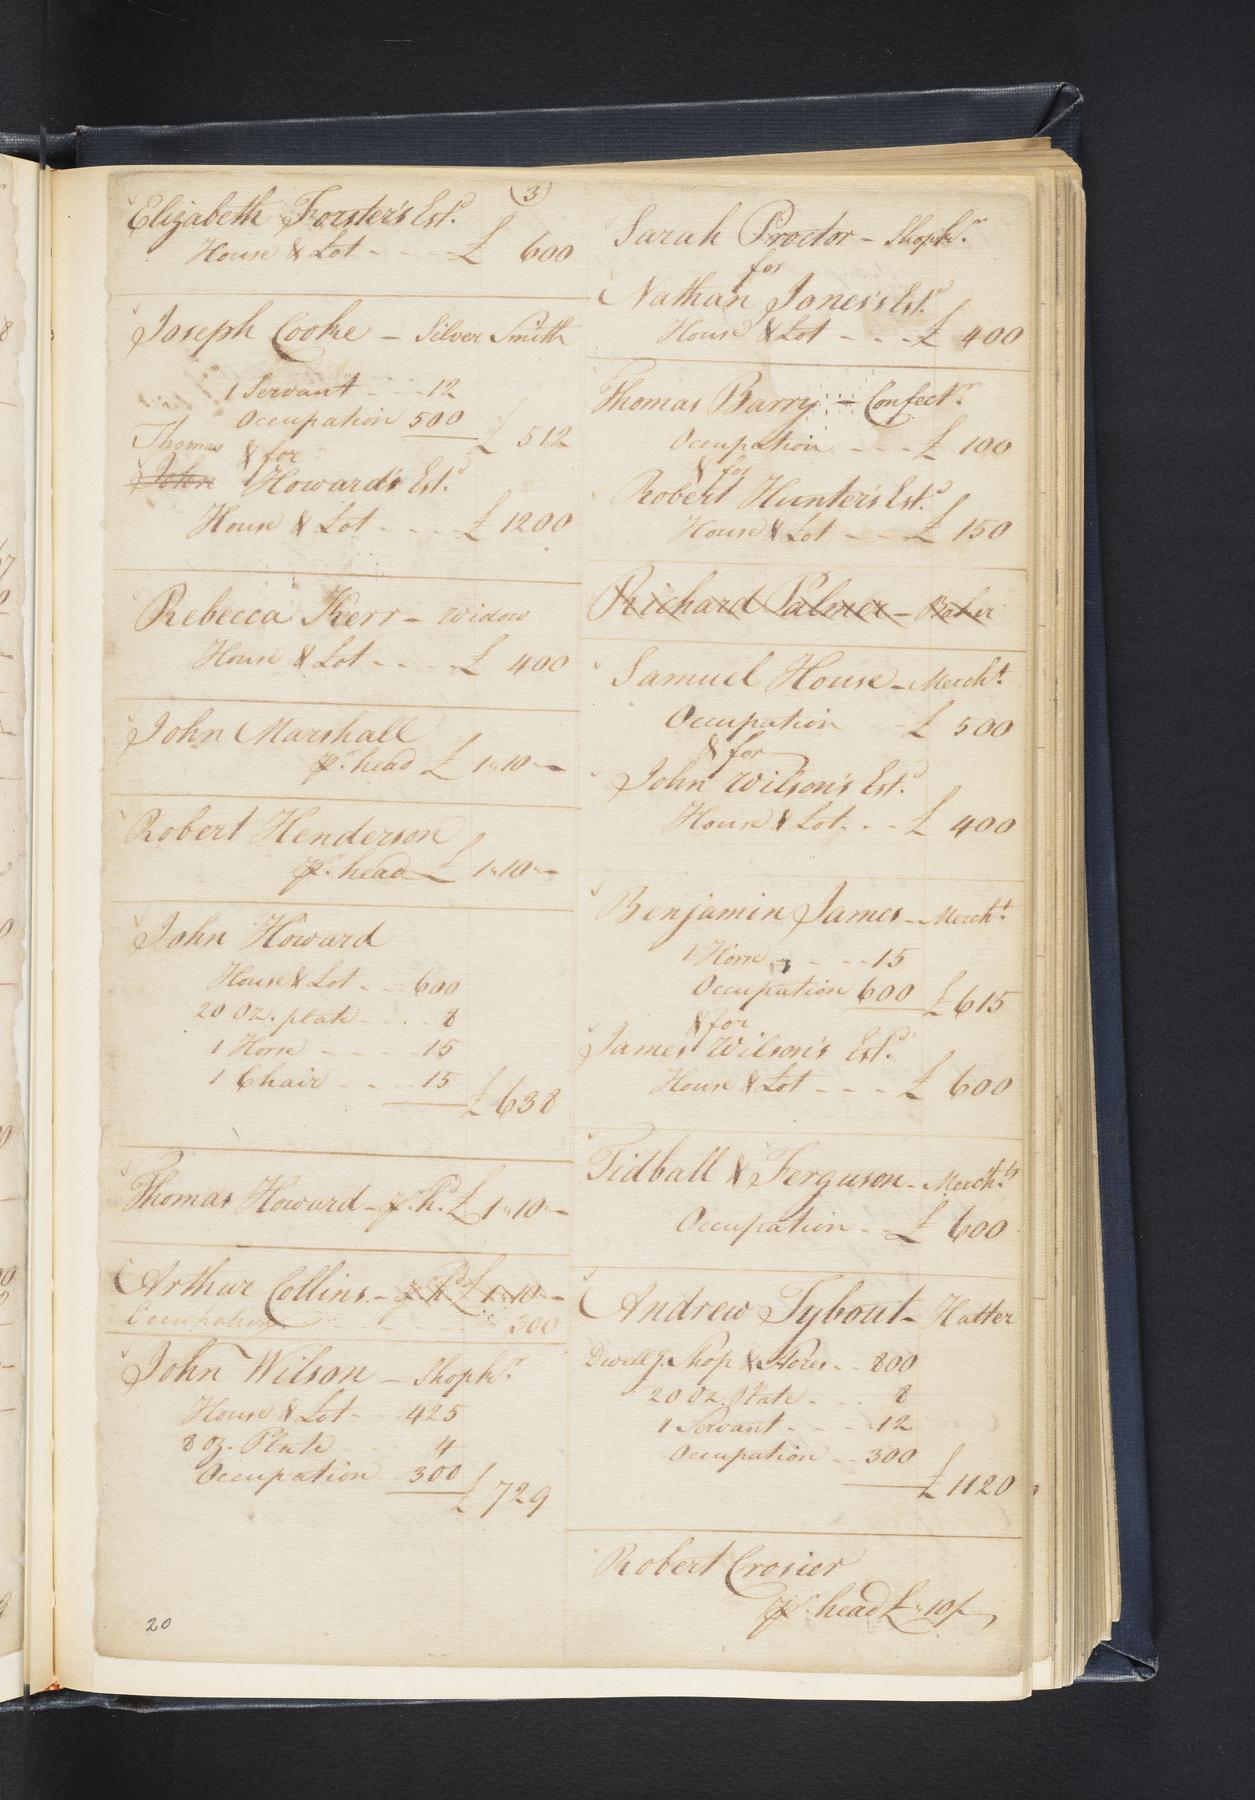 (3)
Elizabeth Forster's Estd.
House & Lot - - - - £ 600
Joseph Cooke - Silver Smith
1 Servant - - - 12
Occupation 500 £ 512
Thomas & for
John Howard's Estd.
House & Lot - - - - £ 1200
Rebecca Kerr - Widow
House & Lot - - - - £ 400
John Marshall
pr. head £ 1"10"-
Robert Henderson
pr. head £ 1"10"-
John Howard
House & Lot - - - 600
20 Oz. plate - - - - 8
1 Horse - - - - 15
1 Chair - - - - 15
£ 638
Thomas Howard - pr. hd. £ 1"10"-
Arthur Collins - pr. hd. £ 1"10"-
Occupation - - - 300
John Wilson - Shopkr.
House & Lot - - 425
8 oz. Plate 4
Occupation - 300
£ 729
20
Sarah Proctor - Shopkr.
for
Nathan Jones's Estd.
House & Lot - - - £ 400
Thomas Barry - Confectr.
Occupation - - - £ 100
& for
Robert Hunter's Estd.
House & Lot - - - £ 150
Richard Palmer - Baker
Samuel House - Mercht.
Occupation - £ 500
& for
John Wilson's Estd.
House & Lot - - - £ 400
Benjamin James - Mercht.
1 Horse - - - 15
Occupation 600 £ 615
& for
James Wilson's Estd.
House & Lot - - - - £ 600
Tidball & Ferguson - Merchts.
Occupation - - £ 600
Andrew Tybout - Hatter
Dwellg. Shop & Stores - - 800
20 Oz. Plate - - - 8
1 Servant - - - 12
Occupation - - 300
£ 1120
Robert Crosier
pr. head £ "10/-